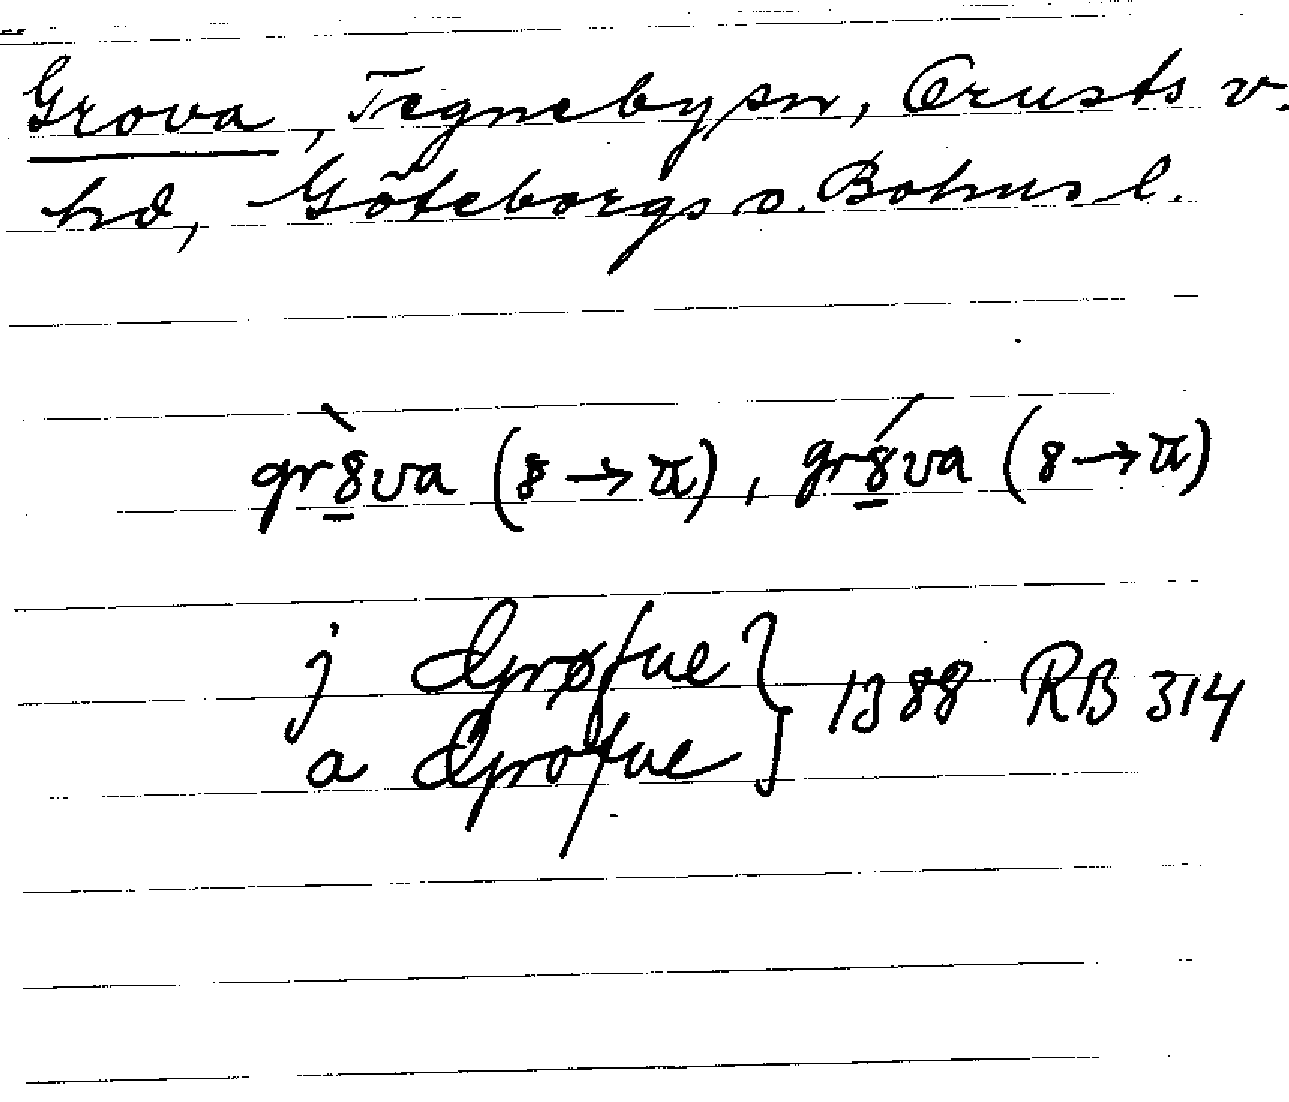 Grova, Tegneby sn, Orusts v.
hd, Göteborgs o. Bohus l.
gr8̲̀va (8→ŭ), gr8̲́va (8→ŭ)
j Grøfue } 1388 RB 314
a Grofue